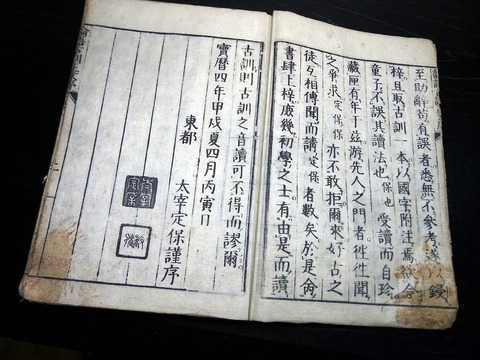 至助辭苟有誤者悉無不參考遂以鋟
梓且取古訓一本以國字附注焉欲令
童子不誤其讀法也保也受讀而自珍
藏匣有年于茲游先人之門者徃徃聞
之爭求定保保亦不敢拒爾來好古之
徒互相傳聞而請定保者數矣於是
書肆上梓庶幾初學之士有由是而讀
古訓則古訓之音讀可不得而謬爾
寶曆四年甲戌夏四月丙寅日
東都
太宰定保謹序